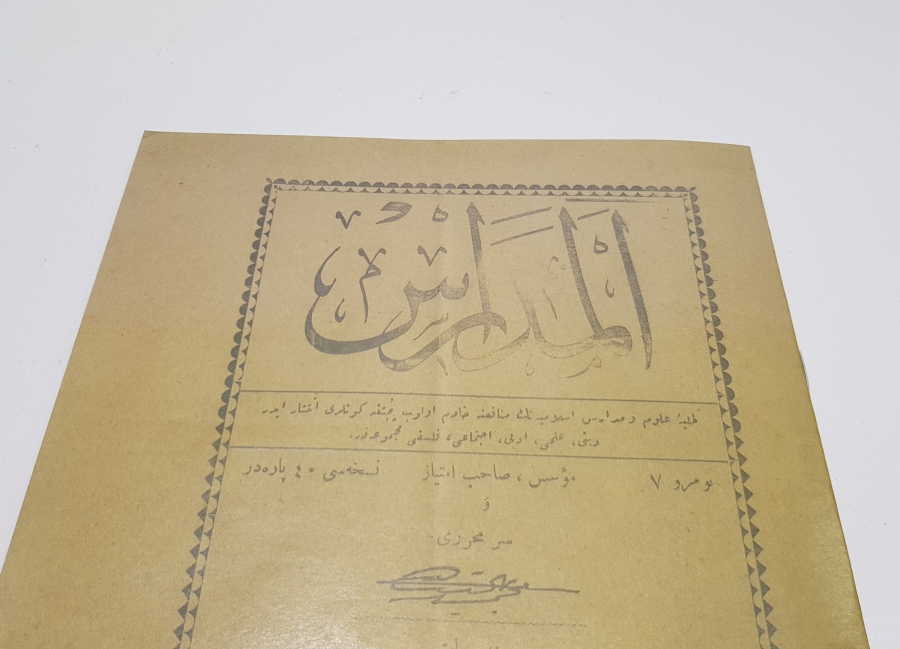 المدارس
طلبۀ علوم و مدارس اسلامیه‌نك منافعنه خادم اولوب پنجشنبه كونلری انتشار ایدر
دینی، علمی، ادبی، اجتماعی، فلسفی مجموعه‌در.
نومرو ٧ مؤسس، صاحب امتیاز نسخه‌سی ٤٠ پاره‌در
و
سر محرری